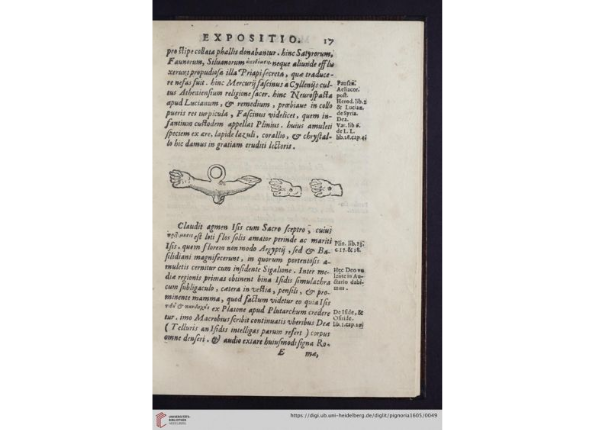 EXPOSITIO. 17
pro stipe collata phallis donabantur. hinc Satyrorum,
Faunorum, Siluanorum neque aliunde efflu
xerunt propudiosa illa Priapi secreta, quæ traduce-
re nefas sit. hinc Mercurij fascinus a Cyllenijs cul-
tus Atheniensium religione sacer. hinc Neurospasta
apud Lucianum, & remedium, præbiaue in collo
pueris res turpicula, Fascinus videlicet, quem in-
fantium custodem appellat Plinius. huius amuleti
speciem ex ære, lapide lazuli, corallio, & chrystal-
lo hic damus in gratiam eruditi lectoris.
Pausan.
post.
Herod. lib. 2
& Lucian.
de Syria.
Dea.
Var. lib. 6.
de L. L.
lib. 28. cap. 4
Claudit agmen Isis cum Sacro sceptro, cuius
est loti flos solis amator perinde ac mariti
Isis. quem florem non modo Ægyptij, sed & Ba-
silidiani magnifecerunt, in quorum portentosis a-
muletis cernitur cum insidente Sigalone. Inter me-
dia regionis primas obtinent bina Isidis simulachra
cum subligaculo, cætera in vestia, pensili, & pro-
minente mamma, quod factum videtur eo quia Isis
ex Platone apud Plutarchum credere
tur. imo Macrobius scribit continuatis vberibus Deæ
(Telluris an Isidis intelligas parum refert) corpus
omne densari. & audio extare huiusmodi signa Ro-
E mæ,
Plin. lib. 13.
c. 17. & 18.
De Iside, &
Osiride.
lib. 1. cap. 20
UNIVERSITÄTS-
BIBLIOTHEK
HEIDELBERG
https://digi.ub.uni-heidelberg.de/diglit/pignoria1605/0049